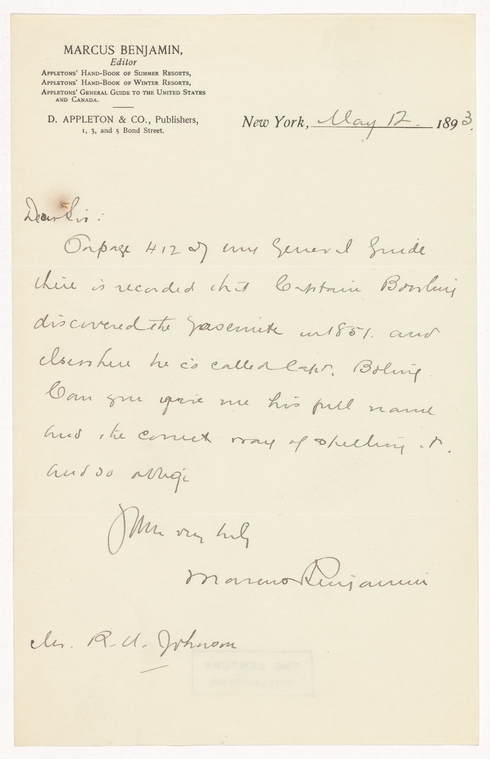 MARCUS BENJAMIN,
Editor
APPLETONS' HAND-BOOK OF SUMMER RESORTS,
APPLETONS' HAND-BOOK OF WINTER RESORTS,
APPLETONS' GENERAL GUIDE TO THE UNITED STATES
AND CANADA.
D. APPLETON & CO., Publishers,
1, 3, and 5 Bond Street.
New York, May 12 1893.
Dear Sir:
On page 412 of our General Guide
there is recorded that Captain Bowling
discovered the Yosemite in 1851. and
elsewhere he is called Capt. Boling.
Can you give me his full name
and the correct way of spelling it.
and so oblige
Yours very truly
Marcus Benjamin
Mr. R. U. Johnson
THE CENTURY
COLLECTION